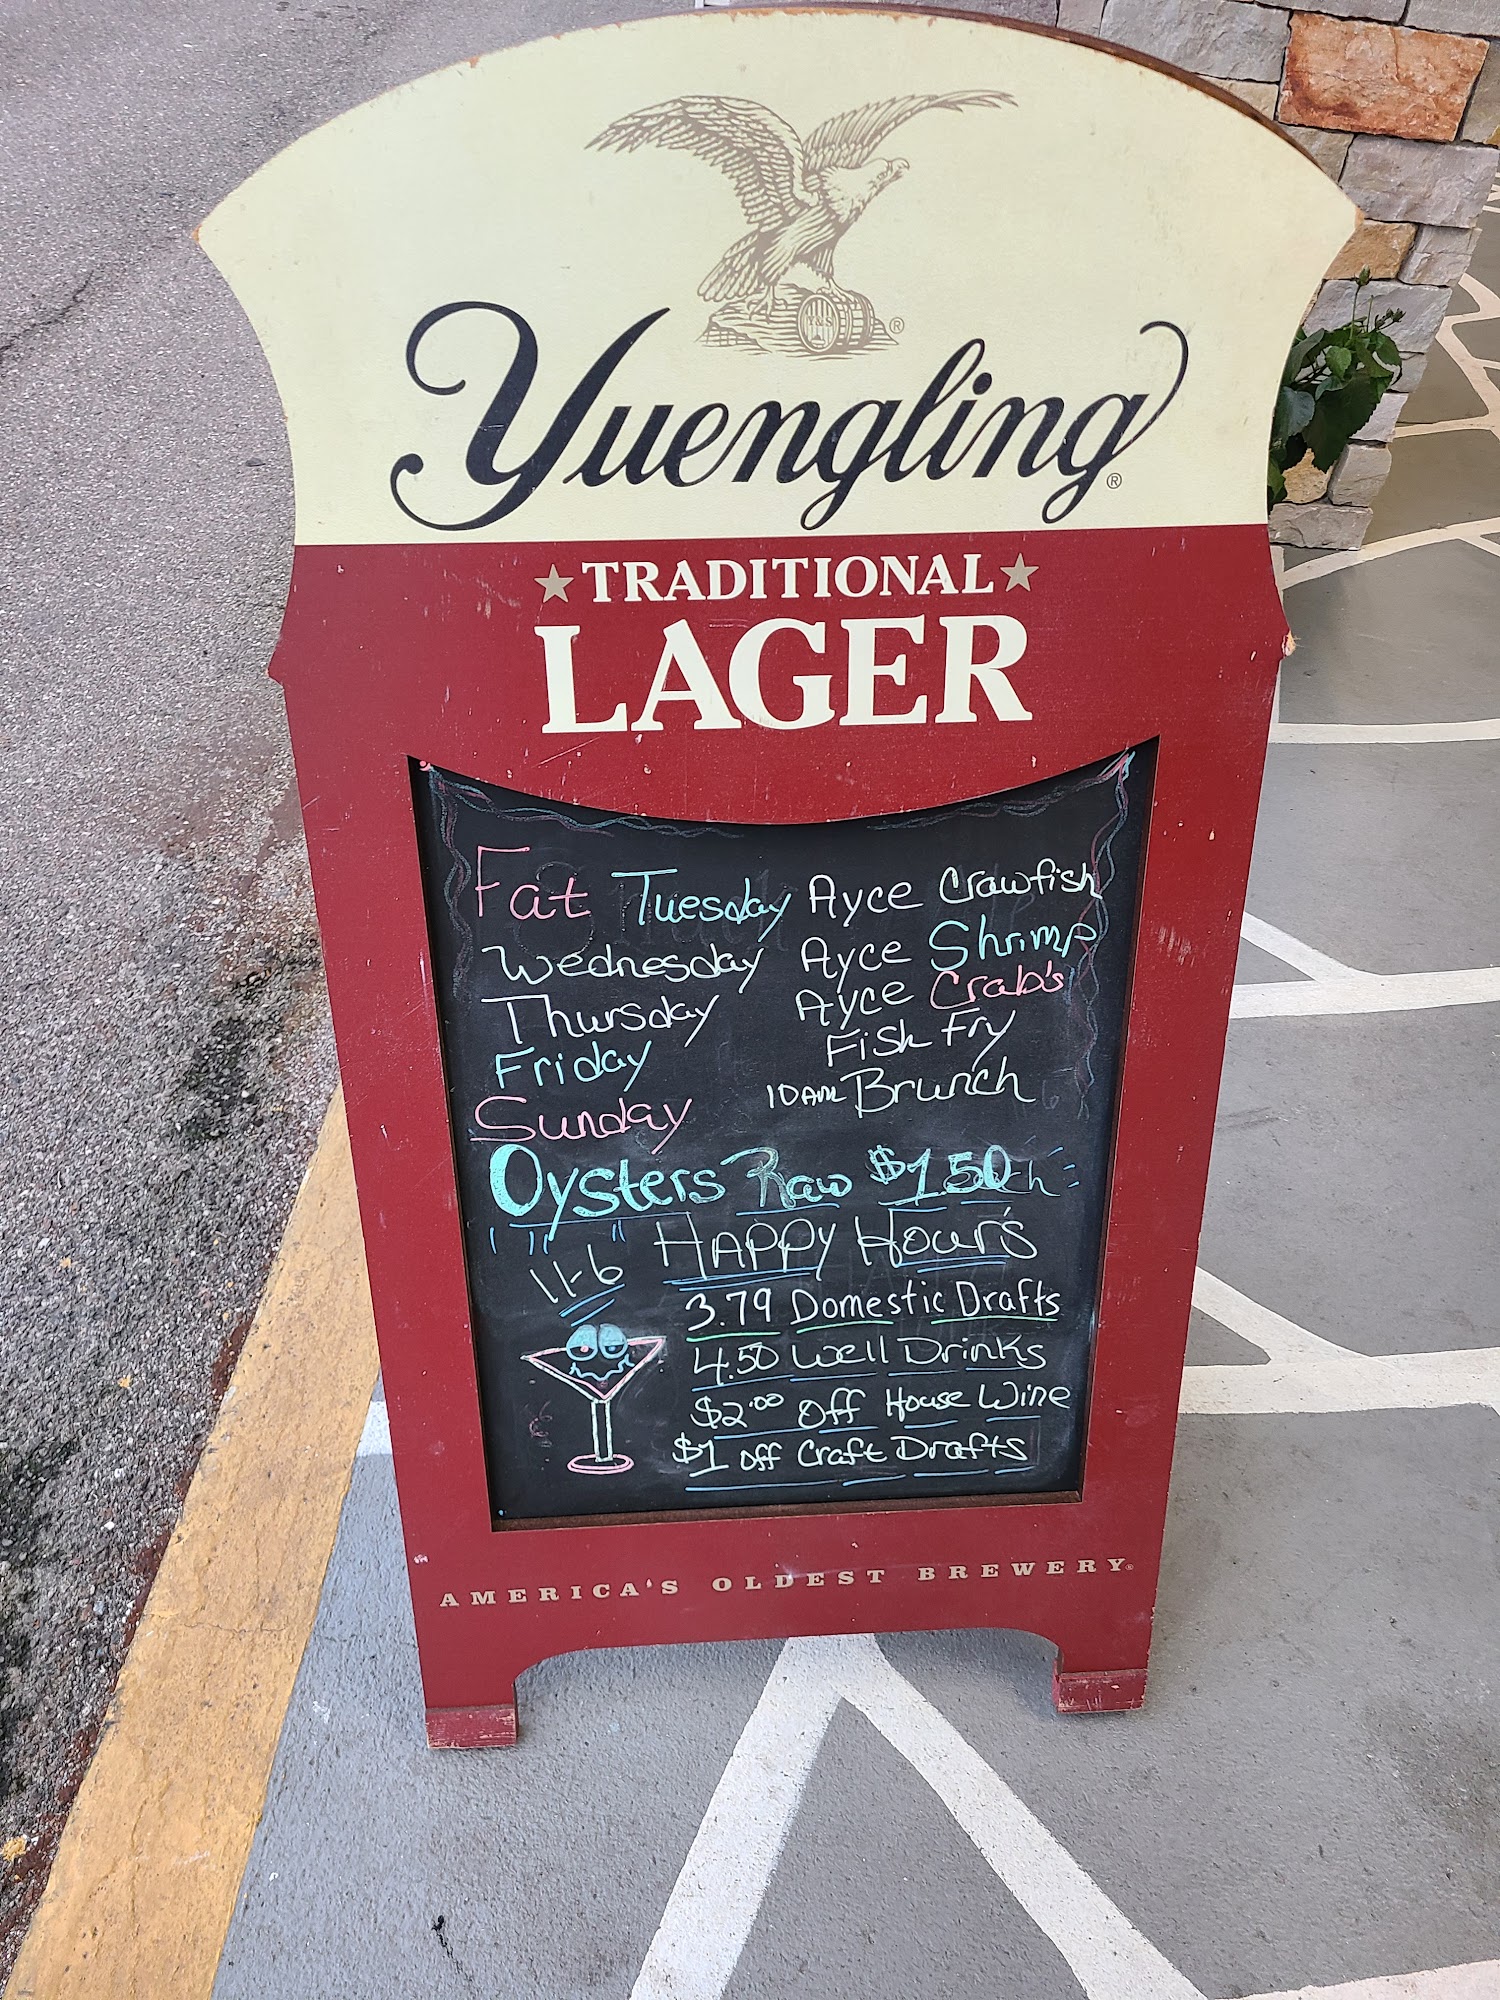 Yuengling®
★ TRADITIONAL ★
LAGER
Fat Tuesday Ayce Crawfish
Wednesday Ayce Shrimp
Thursday Ayce Crab's
Friday Fish Fry
Sunday 10AM Brunch
Oysters Raw $1.50
11-6 HAPPY Hour's
3.79 Domestic Drafts
4.50 Well Drinks
$2.00 Off House Wine
$1 Off Craft Drafts
AMERICA'S OLDEST BREWERY®